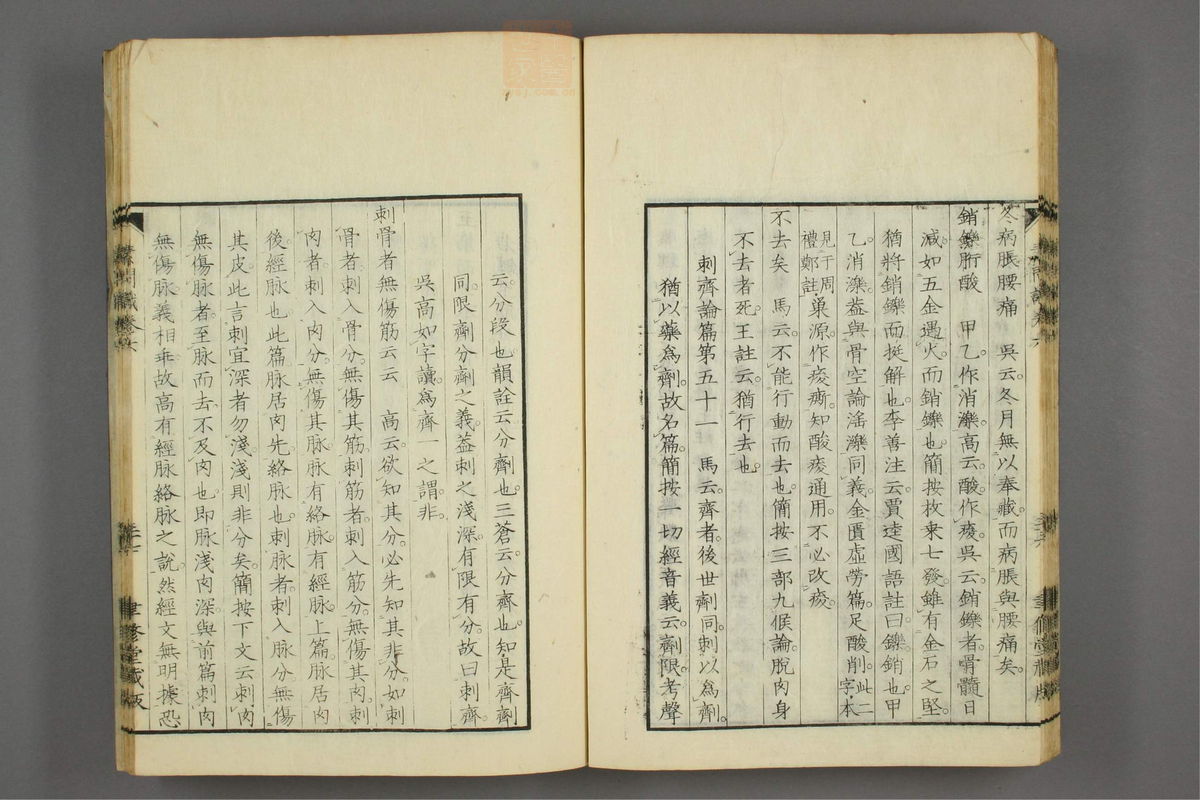 冬病脹腰痛　吳云冬月無以奉藏而病脹與腰痛矣
銷鑠䯒酸　甲乙作消濼高云酸作痠吳云銷鑠者骨髓日
減如五金遇火而銷鑠也簡按枚乘七發雖有金石之堅
猶將銷鑠而挺解也李善注云賈逵國語註曰鑠銷也甲
乙消濼蓋與骨空論淫濼同義金匱虛勞篇足酸削此二字本
見于周禮鄭註巢源作痠㾷知酸痠通用不必改痠
不去矣　馬云不能行動而去也簡按三部九候論脫肉身
不去者死王註云猶行去也
刺齊論篇第五十一　馬云齊者後世劑同刺以爲劑
猶以藥爲劑故名篇簡按一切經音義云劑限考聲
云分段也韻詮云分劑也三蒼云分齊也知是齊劑
同限劑分劑之義蓋刺之淺深有限有分故曰刺齊
吳高如字讀爲齊一之謂非
刺骨者無傷筋云云　高云欲知其分必先知其非分如刺
骨者刺入骨分無傷其筋刺筋者刺入筋分無傷其肉刺
肉者刺入肉分無傷其脉脉有絡脉有經脉上篇脉居肉
後經脉也此篇脉居肉先絡脉也刺脉者刺入脉分無傷
其皮此言刺宜深者勿淺淺則非分矣簡按下文云刺肉
無傷脉者至脉而去不及肉也即脉淺肉深與前篇刺肉
無傷脉義相乖故高有經脉絡脉之說然經文無明據恐
素問識卷六
三十七
聿修堂藏版